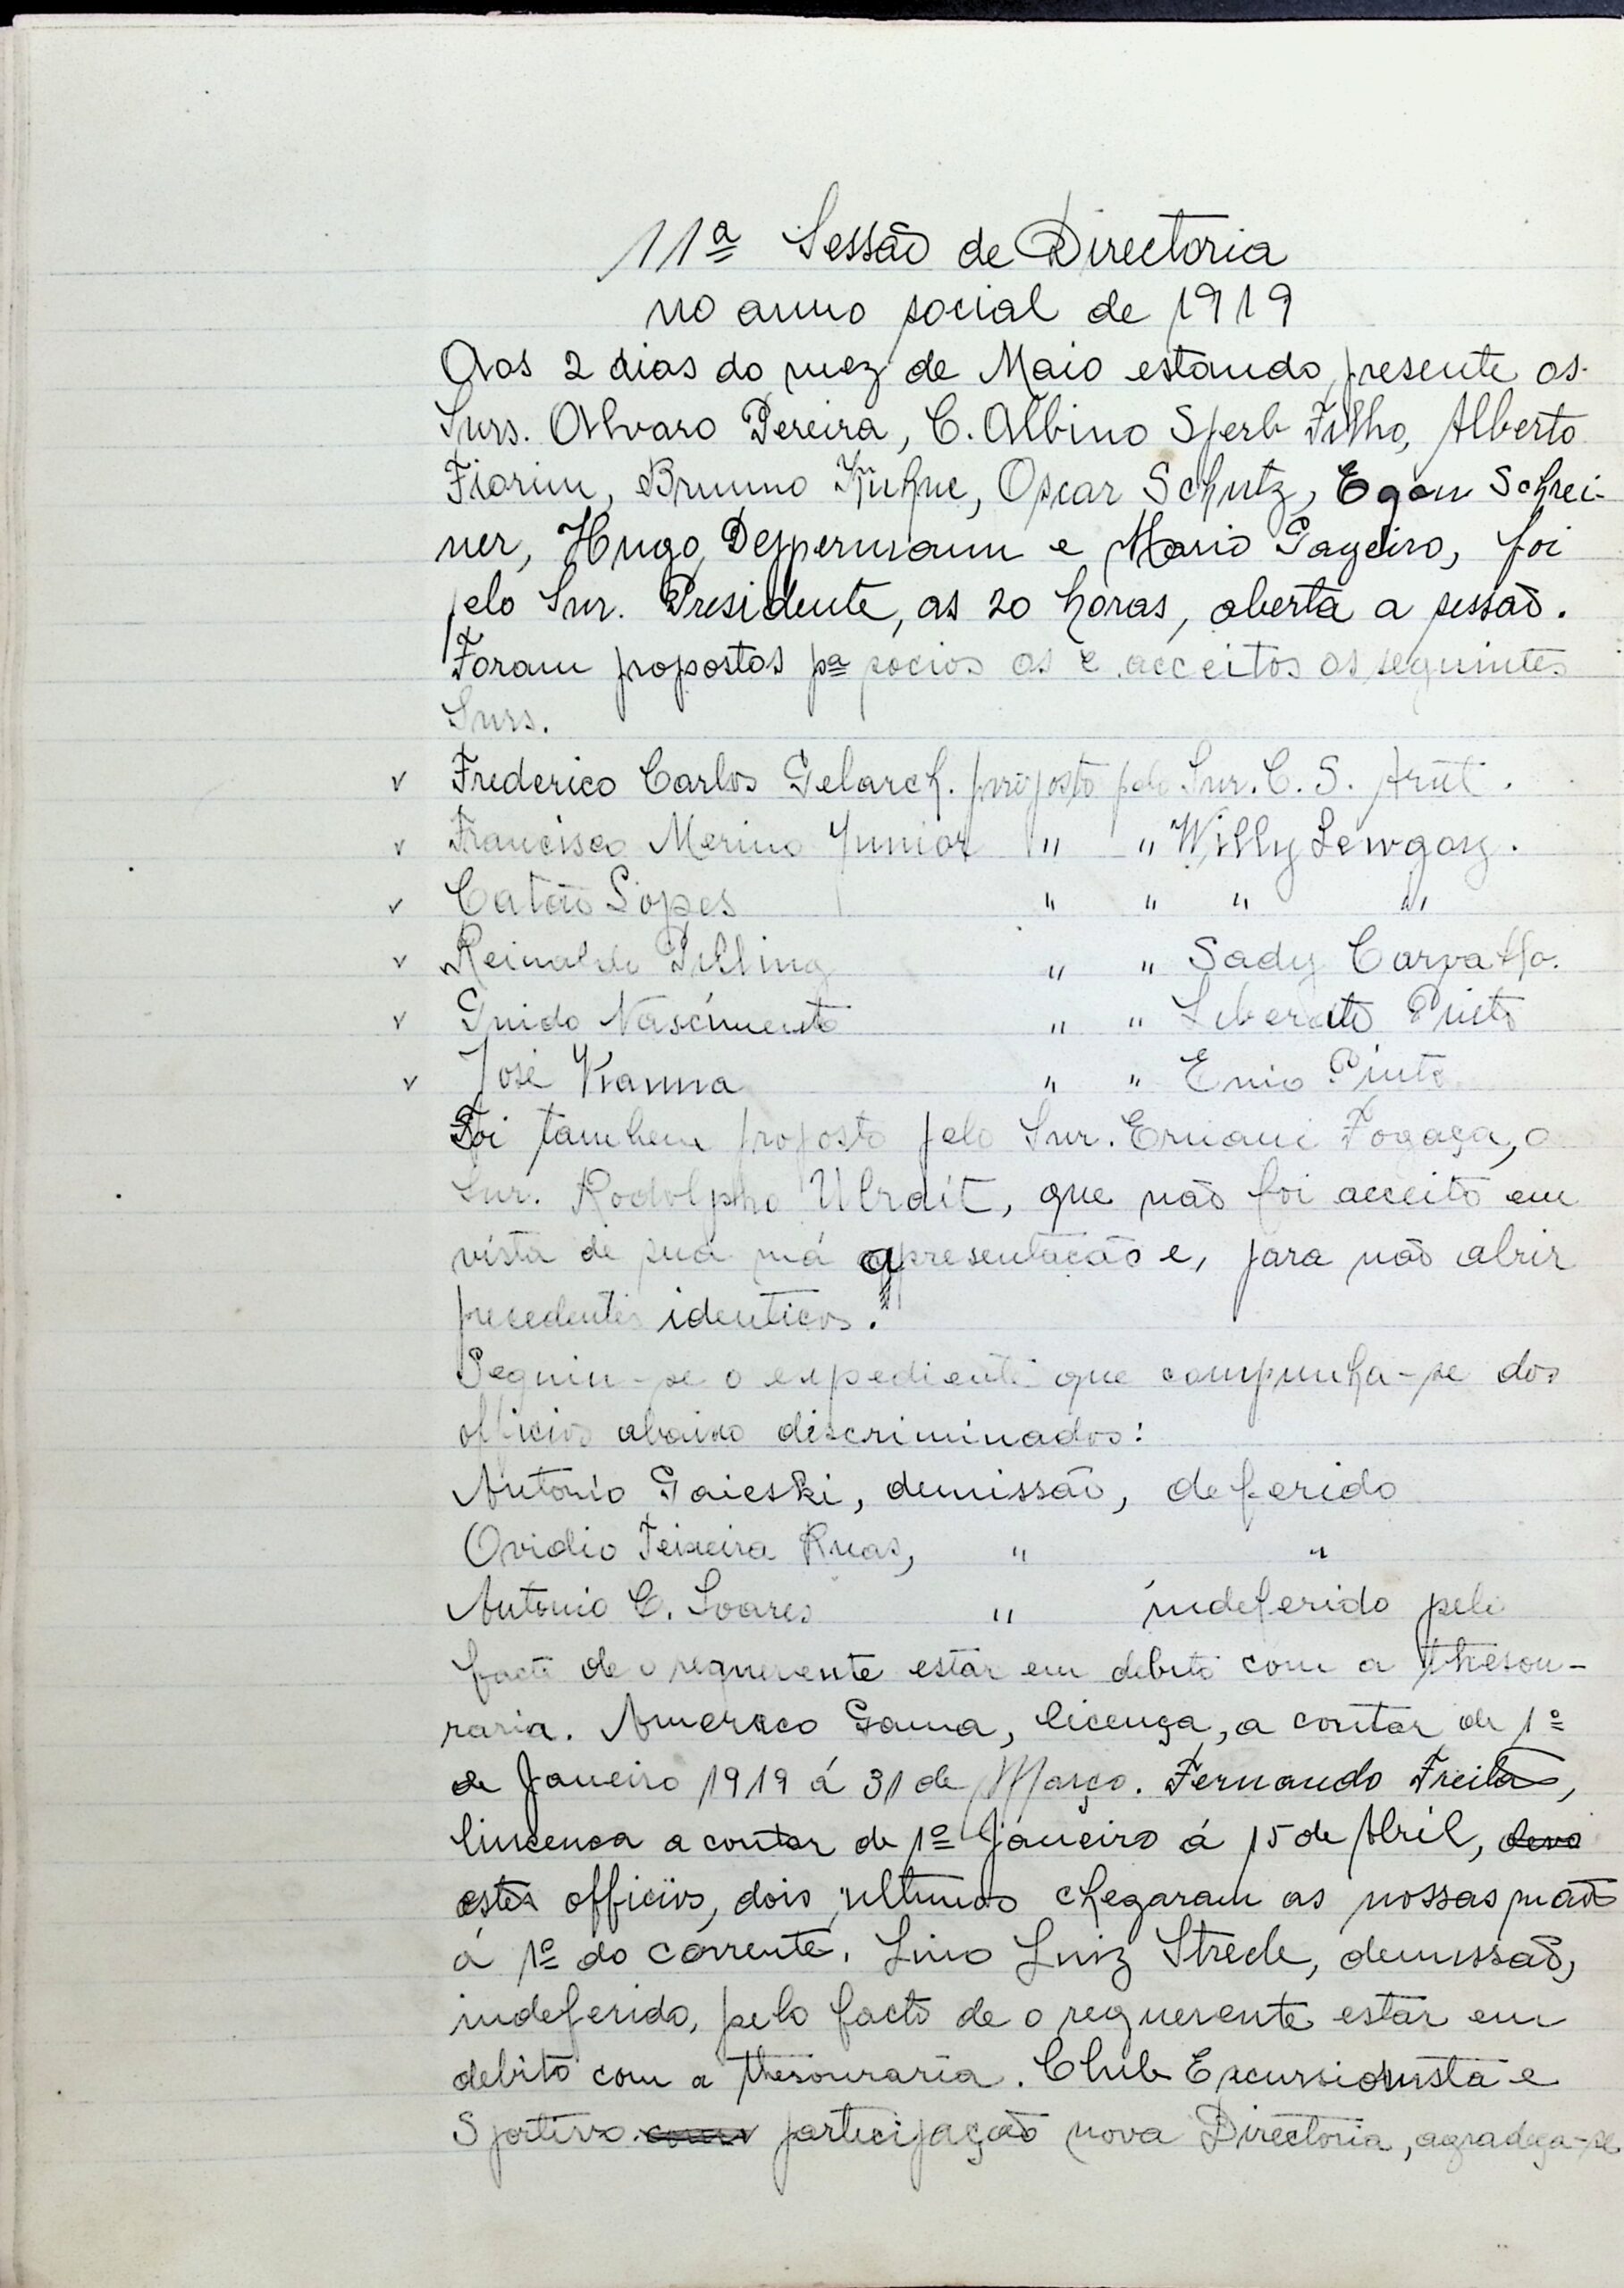 11ª Sessão de Directoria
no anno social de 1919
Aos 2 dias do mez de Maio estando presente os
Snrs. Alvaro Pereira, C. Albino Sperb Filho, Alberto
Fiorim, Brunno Kühne, Oscar Schutz, Egon Schrei-
ner, Hugo Deppermann e Mario Gageiro, foi
pelo Snr. Presidente, as 20 horas, aberta a sessão.
Foram propostos pª socios os e acceitos os seguintes
Snrs.
v Frederico Carlos Gelarch. proposto pelo Snr. C. S. Arnt.
v Francisco Merino Junior " " Willy Lewgoy.
v Catão Lopes " " " "
v Reinaldo Pilling " " Sady Carvalho.
v Guido Nascimento " " Liberato Pinto
v José Vianna " " Enio Pinto
Foi tambem proposto pelo Snr. Ernani Fogaça, o
Snr. Rodolpho Ulrait, que não foi acceito em
vista de sua má apresentação e, para não abrir
precedentes identicos.
Seguiu-se o expediente que compunha-se dos
officios abaixo discriminados:
Antonio Gaieski, demissão, deferido
Ovidio Teixeira Ruas, " "
Antonio C. Soares " indeferido pelo
facto de o requerente estar em debito com a thesou-
raria. Amereco Gama, licença, a contar de 1º
de Janeiro 1919 á 31 de Março. Fernando Freitas,
lincença a contar de 1º Janeiro á 15 de Abril,
estes officios, dois ultimos chegaram as nossas mãos
á 1º do corrente. Lino Luiz Strede, demissão,
indeferido, pelo facto de o requerente estar em
debito com a thesouraria. Club Excursionista e
Sportivo participação nova Directoria, agradeça-se